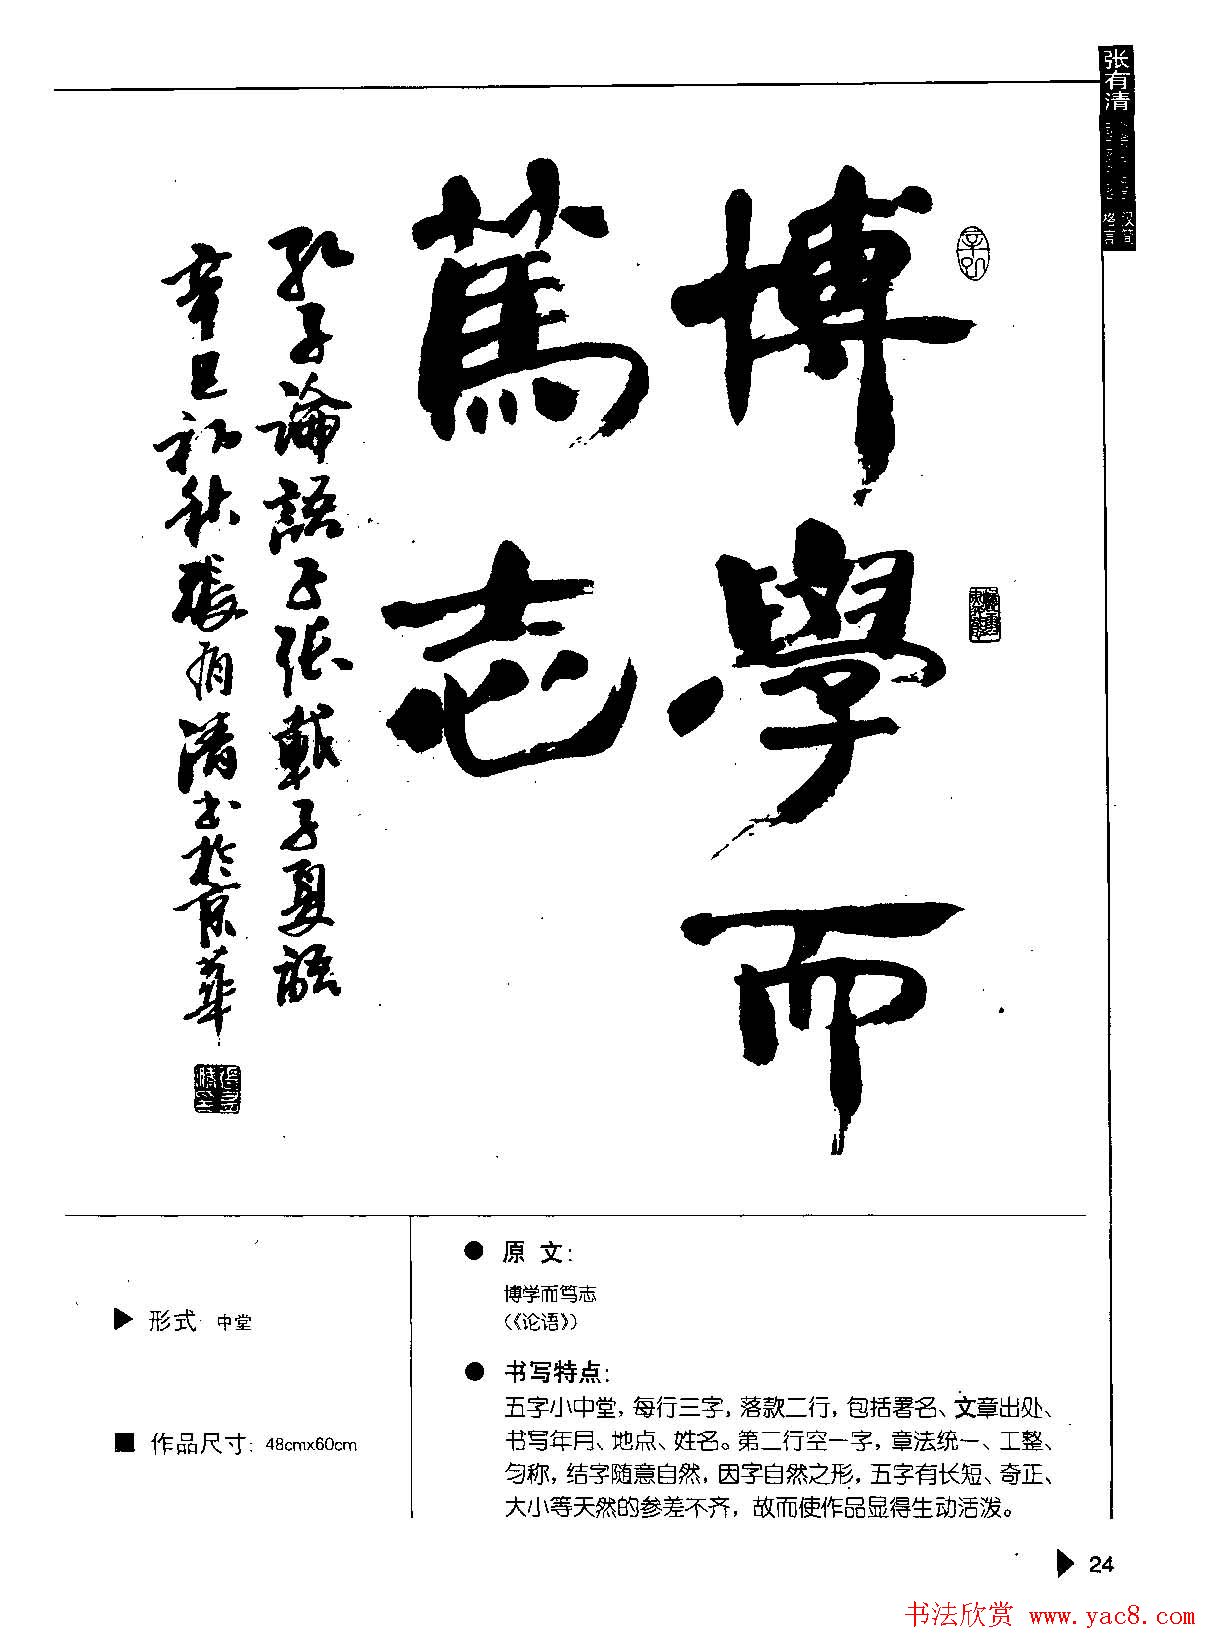 张有清
汉简
格言
博學而
篤志
孔子論語子张載子夏語
辛巳初秋張有清书於京華
形式 中堂
作品尺寸: 48cmx60cm
● 原 文:
博学而笃志
(《论语》)
● 书写特点:
五字小中堂, 每行三字, 落款二行, 包括署名、文章出处、
书写年月、地点、姓名。第二行空一字, 章法统一、工整、
匀称, 结字随意自然, 因字自然之形, 五字有长短、奇正、
大小等天然的参差不齐, 故而使作品显得生动活泼。
24
书法欣赏 www.yac8.com